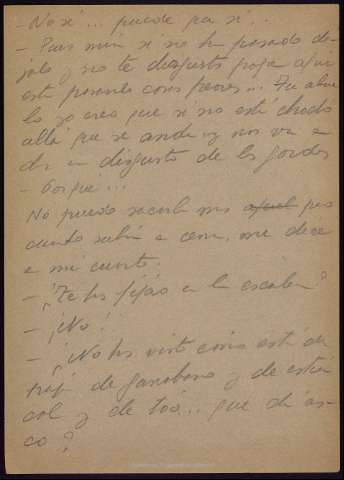 - No sé... puede que sí..
- Pues mira si no ha pasado dé-
jalo y no te disgusts porque aquí
está pasando cosas peores... Tu abue-
lo yo creo que si no está chodo
allá que se anda y nos va a
dar un disgusto de los gordos
- Por qué...
No puedo sacarle mas pero
cuando subía a cenar, me dice
a mi cuarto.
- ¿Te has fijao en la escalera?
- ¡No!
- ¿No has visto como está de
trajo de garabano y de estiér
col y de tóo... que dá as-
co?